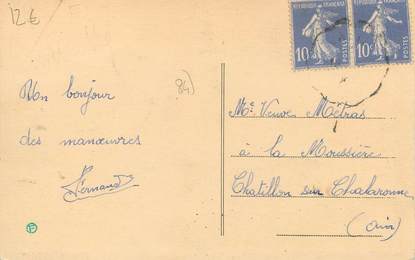 12€
RÉPUBLIQUE FRANÇAISE
10c POSTES
10c POSTES
84)
Un bonjour
des manœuvres
Fernand
Me Veuve Métras
à la Moussière
Chatillon sur Chalaronne
(Ain)